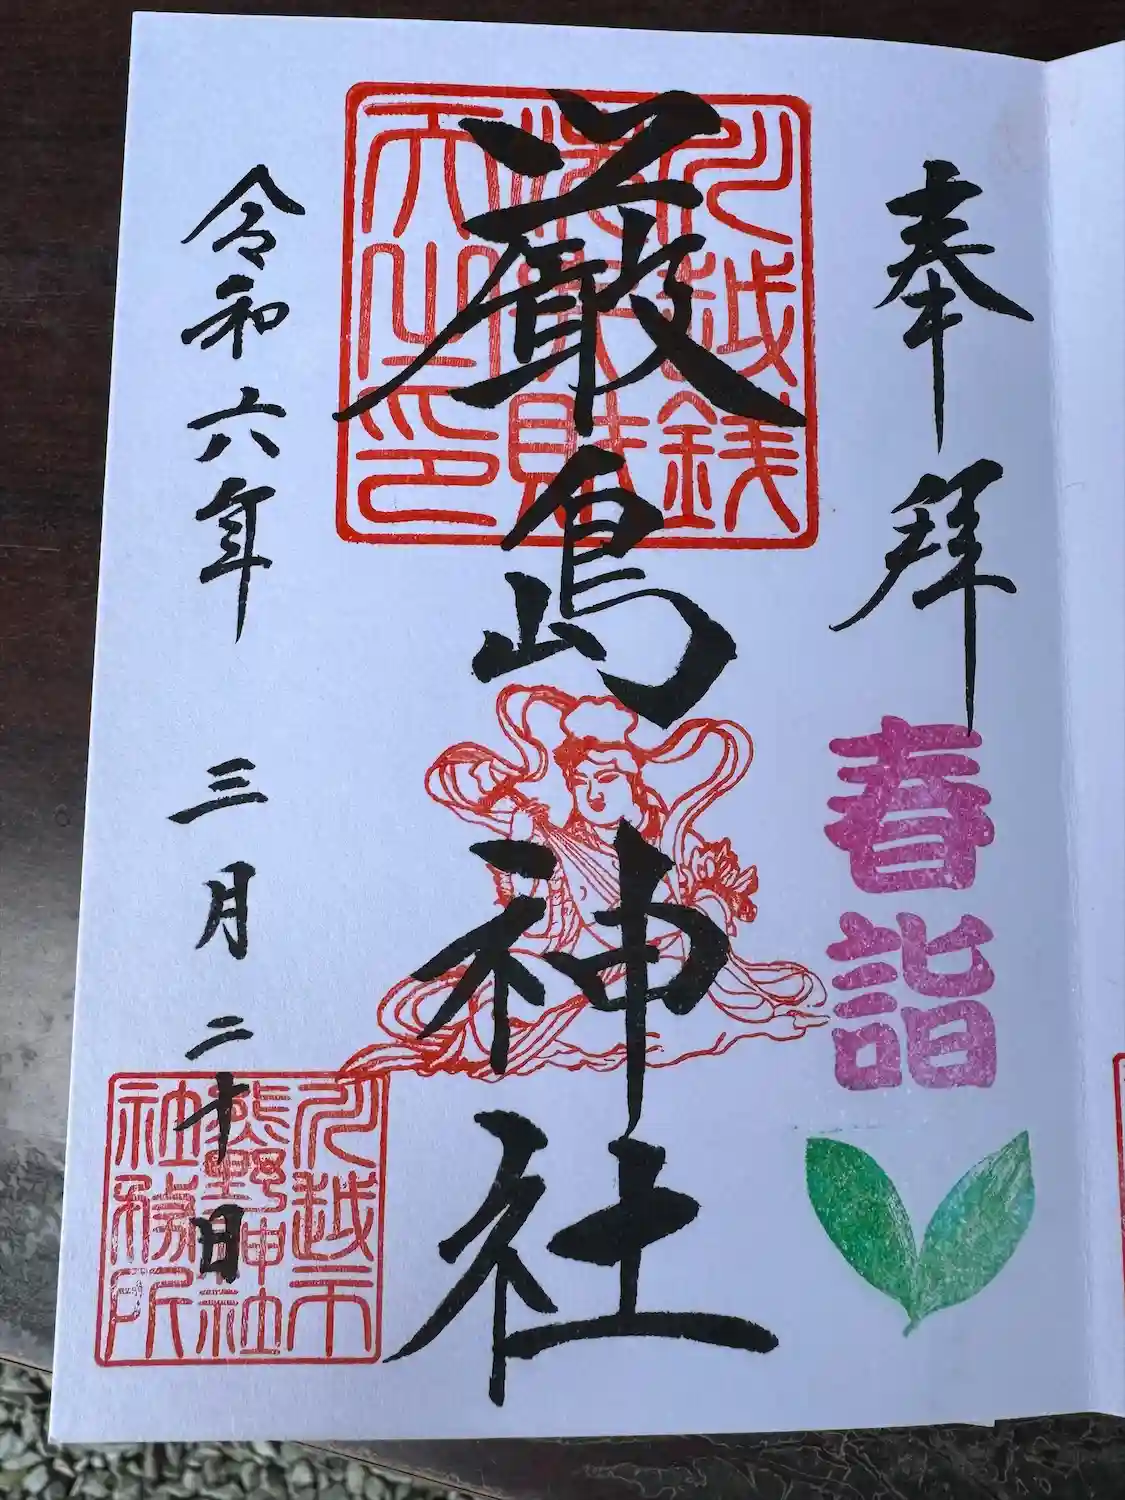 奉拝
春詣
川越銭
洗財
天之印
厳島神社
令和六年 三月二十日
川越市
熊野神社
社務所